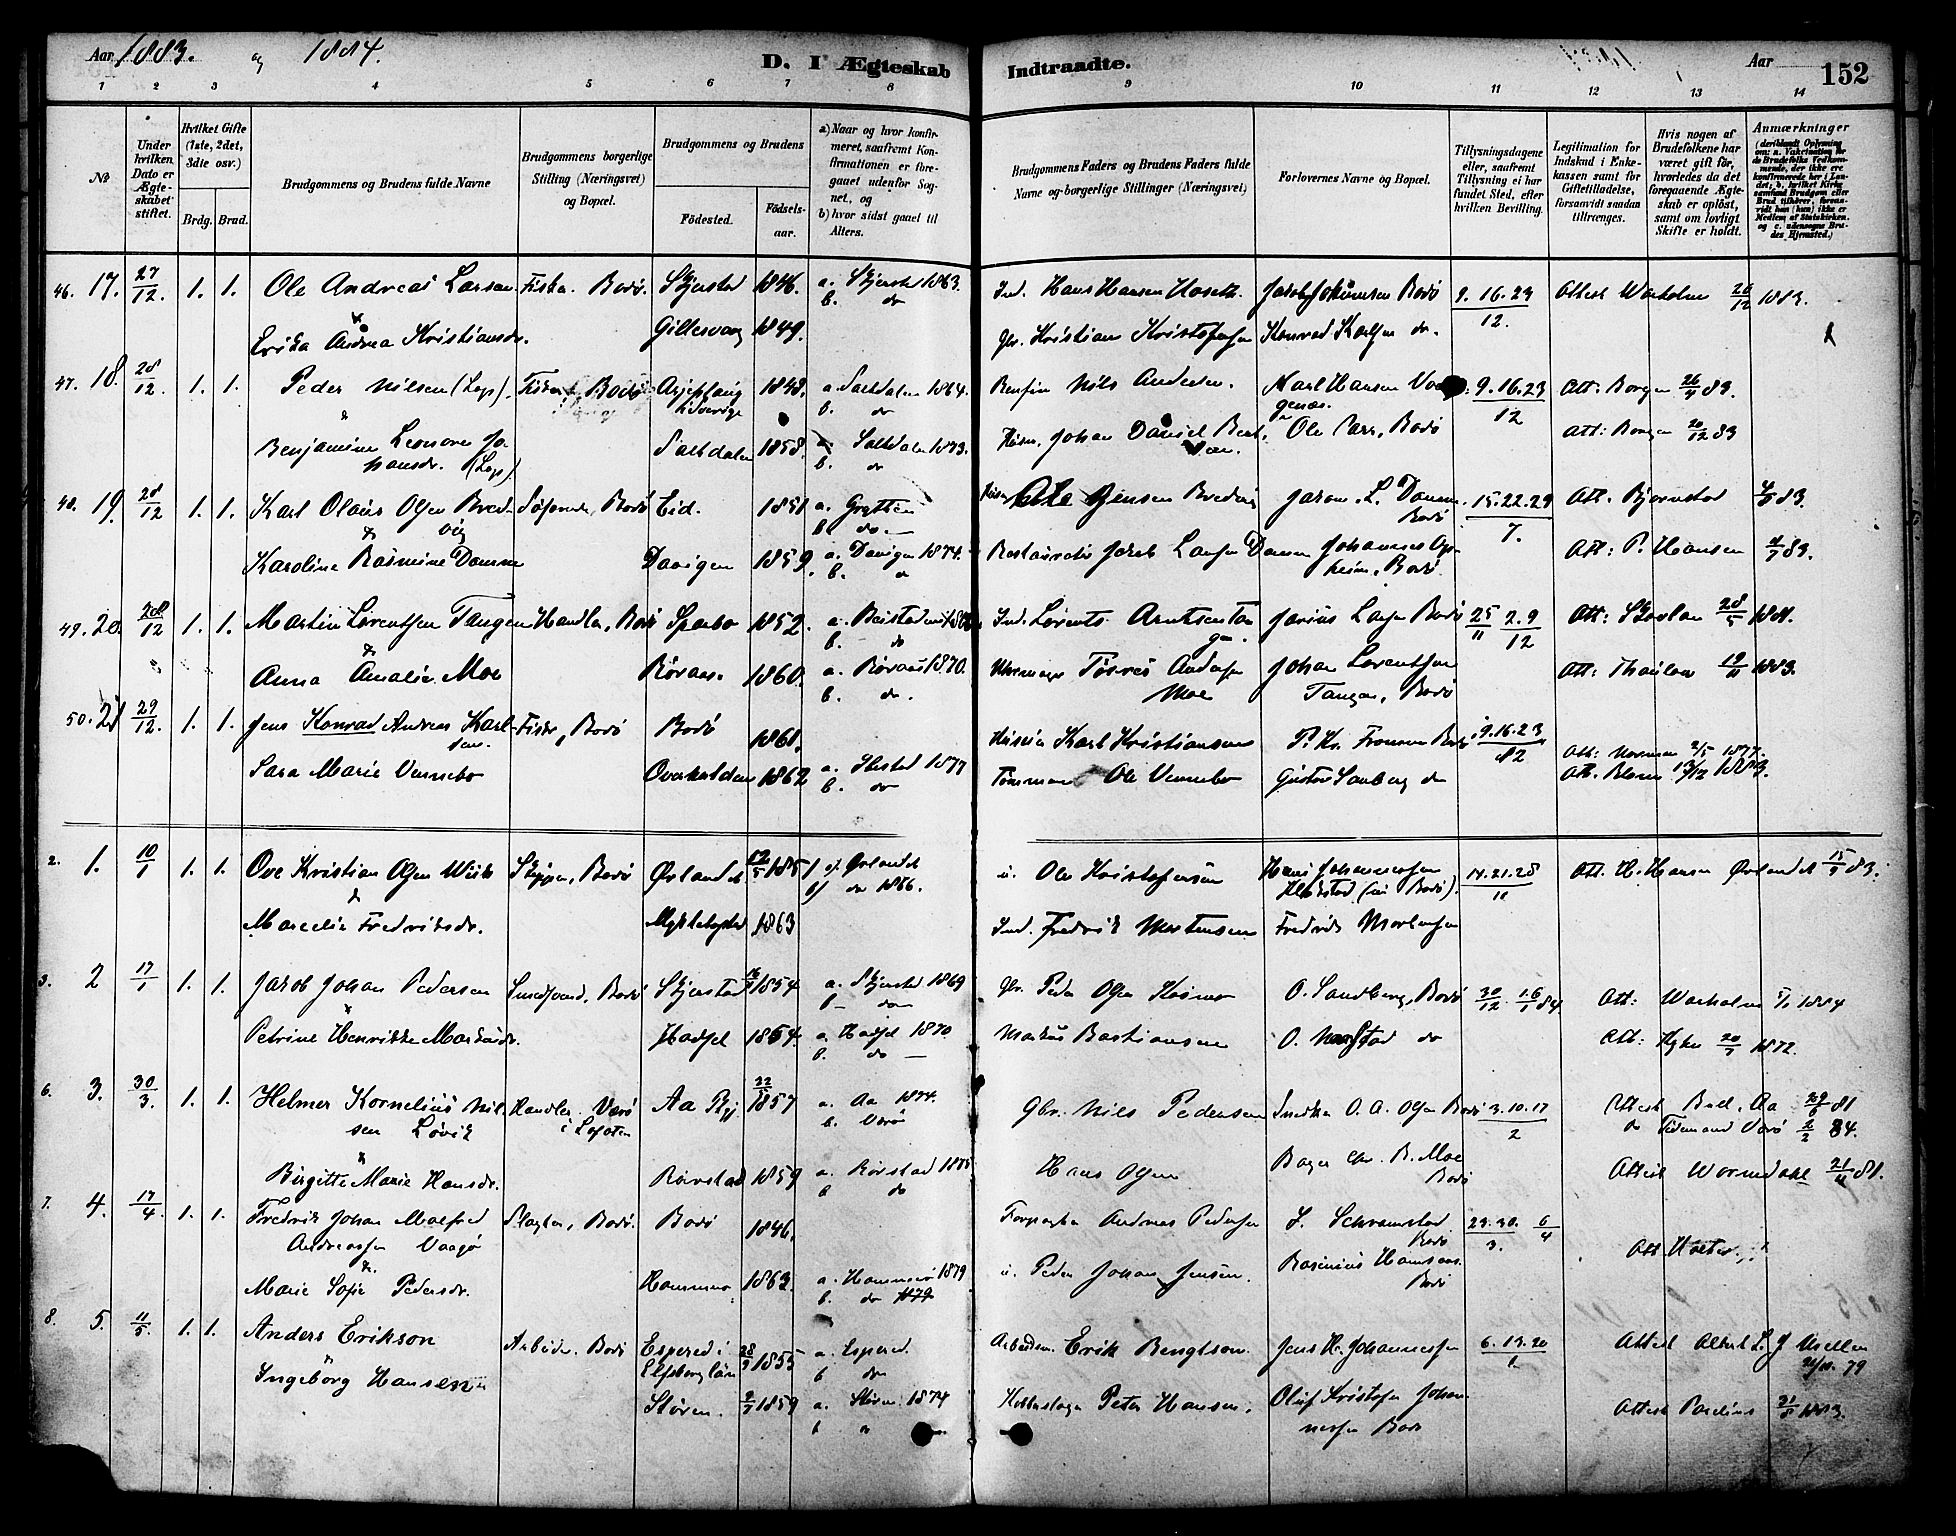 Aar 1883. og 1884.
D. I Ægteskab Indtraadte.
Aar
152
1 2 3 4 5 6 7 8 9 10 11 12 13 14
No
Under hvilken Dato er Ægteskabet stiftet.
Hvilket Gifte (1ste, 2det, 3die osv.)
Brdg. Brud.
Brudgommens og Brudens fulde Navne
Brudgommens borgerlige Stilling (Næringsvei) og Bopæl.
Brudgommens og Brudens
Fødested.
Fødselsaar.
a) Naar og hvor konfirmeret, saafremt Konfirmationen er foregaaet udenfor Sognet, og
b) hvor sidst gaaet til Alters.
Brudgommens Faders og Brudens Faders fulde Navne og borgerlige Stillinger (Næringsvei)
Forlovernes Navne og Bopæl.
Tillysningsdagene eller, saafremt Tillysning ei har fundet Sted, efter hvilken Bevilling.
Legitimation for Indskud i Enkekassen samt for Giftetilladelse, forsaavidt saadan tiltrænges.
Hvis nogen af Brudefolkene har været gift før, hvorledes da det foregaaende Ægteskab er opløst, samt om lovligt Skifte er holdt.
Anmærkninger (deriblandt Oplysning om: a. Vakcination for de Brudefolks Vedkommende, der ikke ere konfirmerede her i Landet; b. hvilket Kirkesamfund Brudgom eller Brud tilhører, forsaavidt han (hun) ikke er Medlem af Statskirken, og c. udensogns Brudes Hjemsted.)
46. 17. 27/12. 1. 1. Ole Andreas Larsen Fisker. Bodø. Skjerstad 1846. a. Skjerstad 1863. b. do Ind. Hans Hansen Jakob Jokumsen Bodø 9. 16. 23/12. Attest Warholm 20/12 1883.
& Erika Andrea Kristiansdr. Gillesvaag 1849. Gbr. Kristian Kristofersen Konrad Karlsen do.
47. 18. 28/12. 1. 1. Peder Nilsen (Lap). Fisker, Bodø Arjeplaug i Sverige 1848. a. Saltdalen 1864. b. do Nils Andersen. Karl Hansen 9. 16. 23/12 Att: Borgen 26/4 83.
& Benjamine Leonore Johansdr. (Lap) Saltdalen 1858. a. Saltdalen 1873. b. do Johan Daniel Ole Parr, Bodø Att: Borgen 20/12 83
48. 19. 28/12 1. 1. Karl Olaus Olsen Bredvig Bodø Eid. 1851 a. Grytten b. do Jensen Bredvig L. Damm Bodø 15. 22. 29/7. Att: Bjørnstad 4/5 83.
& Karoline Rasmine Damm Davigen 1859. a. Davigen 1874. b. do Jakob Larsen Damm Johannes Opheim, Bodø. Att: P. Hansen 4/7 83.
49. 20. 28/12 1. 1. Martin Lorentsen Tangen Handler, Bodø Sparbo 1852. a. Beistaden b. do Ind. Lorents Arntsen Tangen Larsen Bodø 25/11 2. 9/12 Att: 28/5 1881.
& Anna Amalie Moe Røraas. 1860. a. Røraas 1870. b. do. Andersen Moe Johan Lorentsen Tangen, Bodø Att: Thaulow 19/11 1883.
50. 21 29/12. 1. 1. Jens Konrad Andreas Karlsen Fisker, Bodø Bodø 1861. Karl Kristiansen 9. 16. 23/12 Att: 2/5 1877.
Sara Marie Vennebo Overhalden 1862 a. Ibestad 1877 b. do Tømmermand Ole Vennebo Gustav Sandberg do Att: Blom 13/12 1883.
2. 1. 10/1 1. 1. Ove Kristian Olsen Wiik Bodø Ørlandet Ørlandet b) do 1866. u. Ole Kristofersen Hans Johannessen (nu Bodø). 14. 21. 28/11 Att. H. Hansen Ørlandet 15/9 83.
& Marcelie Fredriksdr. 1863 Ind. Fredrik Mortensen Fredrik Mortensen
3. 2 17/1 1. 1. Jakob Johan Pedersen Smedsvend, Bodø Skjerstad 1854 a. Skjerstad 1869 b. do Gbr. Peder Olsen O. Sandberg, Bodø 30/12. 1. 6/1 84. Att: Warholm 5/1 1884
& Petrine Henrikke Markusdr. Hadsel 1854. a. Hadsel 1870 b. do Markus Bastiansen O. do Att: 20/7 1872.
6. 3. 30/3. 1. 1. Helmer Kornelius Nilsen Løvik Handler. Værø i Lofoten Aa 22/5 1857 a. Aa 1874. b. Værø Gbr. Nils Pedersen Snedker O. A. Olsen Bodø 3. 10. 17/2 Attest Aa 29/6 81 do Værø 2/2 84.
& Birgitte Marie Hansdr. Rørstad 1859 a. Rørstad 1875 b do Hans Olsen Bager Chr. B. Moe Bodø Attest Wormdahl 21/11 81.
7. 4. 17/4 1. 1. Fredrik Johan Malfred Andreassen Vaagø Slagter, Bodø. Bodø 1846. Andreas Pedersen Bodø 23. 30/3. 6/4
& Marie Sofie Pedersdr. Hammerø 1863. a. Hammerø 1879 b. do 1879 u. Peder Johan Jensen. Rasmus Hansen Bodø Att
8. 5. 11/5. 1. 1. Anders Erikson Arbeider. Bodø Espered i Elfsborg län 28/9 1855 a. Espered b do Arbeidsm. Erik Bengtson. Jens H. Johannessen 6. 13. 20/1 Attest Albert L. J. 79
& Ingeborg Hansen Støren. 2/7 1859 a. Støren 1874 b do Peter Hansen. Oluf Kristofer Johannessen Bodø Attest 31/8 1883.